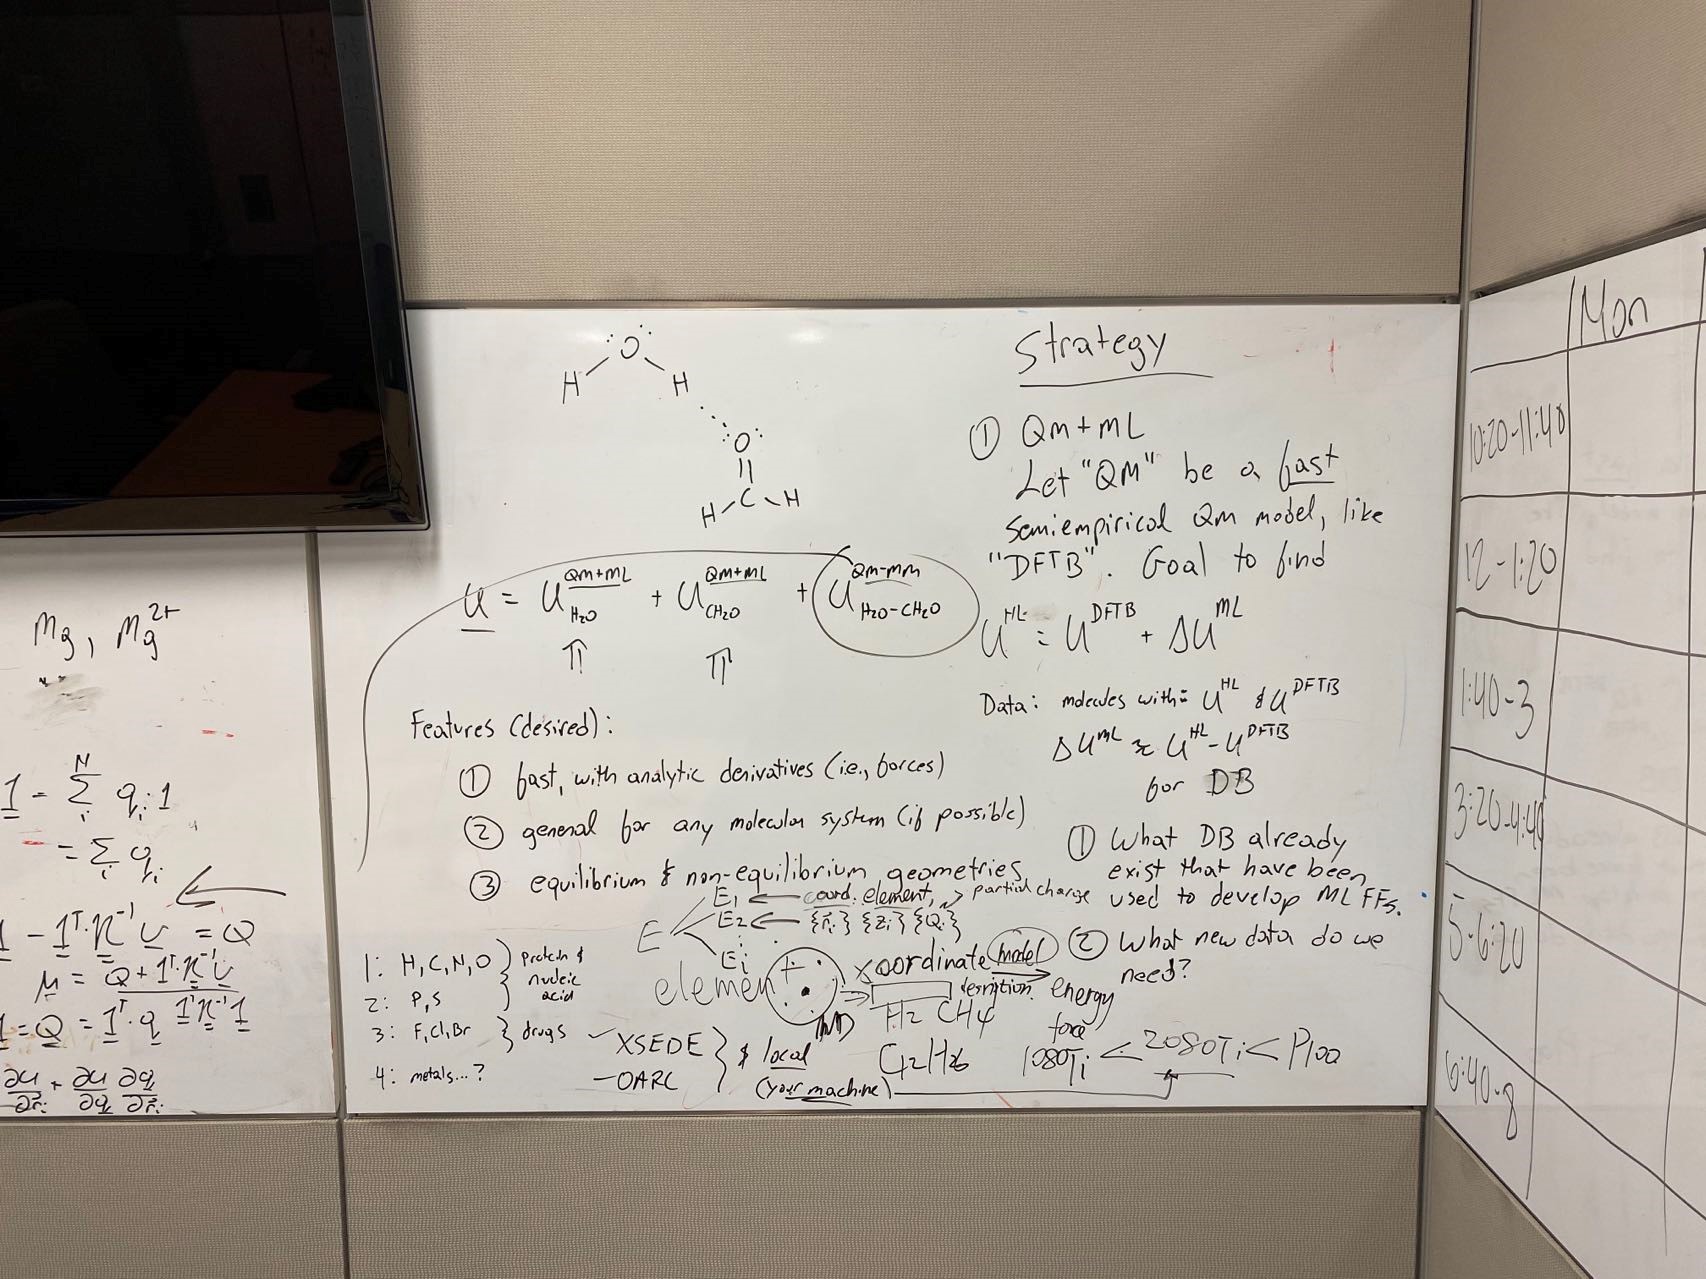 Mg, Mg²⁺
1 - Σ qᵢ 1
N
i
= Σ qᵢ
i
= Q
μ =
= Q = 1ᵀ · q
∂u/∂rᵢ + ∂u/∂q ∂q/∂rᵢ
O
H H
O
||
H C H
U = U^QM+ML H₂O + U^QM+ML CH₂O + U^QM-MM H₂O-CH₂O
Features (desired):
① fast, with analytic derivatives (i.e., forces)
② general for any molecular system (if possible)
③ equilibrium & non-equilibrium geometries
E₁ ← coord. element, → partial charge
E E₂ ← {r⃗ᵢ} {zᵢ} {Qᵢ}
Eᵢ
1: H, C, N, O } protein & nucleic acid
2: P, S
3: F, Cl, Br } drugs
4: metals...?
element
coordinate model
energy
force
H₂ CH₄
- XSEDE
- OARC
& local
(your machine)
1080Ti < 2080Ti < P100
Strategy
① QM+ML
Let "QM" be a fast
semiempirical QM model, like
"DFTB". Goal to find
U^HL = U^DFTB + ΔU^ML
Data: molecules with: U^HL & U^DFTB
ΔU^ML ≈ U^HL - U^DFTB
for DB
① What DB already
exist that have been
used to develop ML FFs.
② What new data do we
need?
Mon
10:20-11:40
12-1:20
1:40-3
3:20-4:40
5-6:20
6:40-8